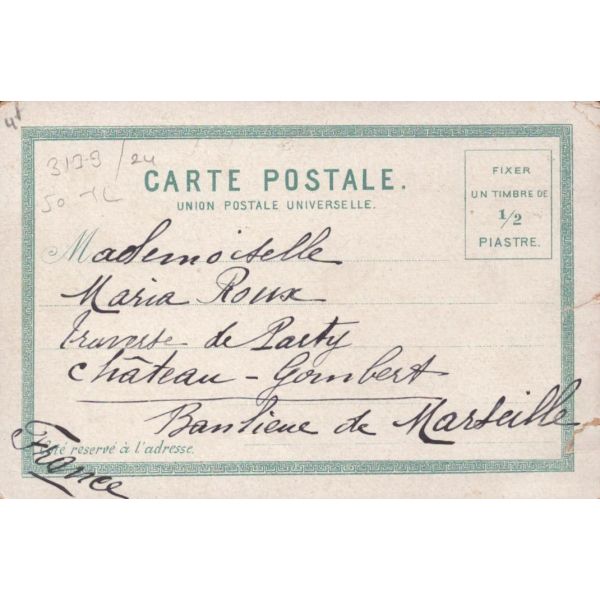 4t
3199/24
50 TL
CARTE POSTALE.
UNION POSTALE UNIVERSELLE.
FIXER
UN TIMBRE DE
1/2
PIASTRE.
Mademoiselle
Maria Roux
traverse de Party
Château-Gombert
Banlieue de Marseille
France
Côté reservé à l'adresse.